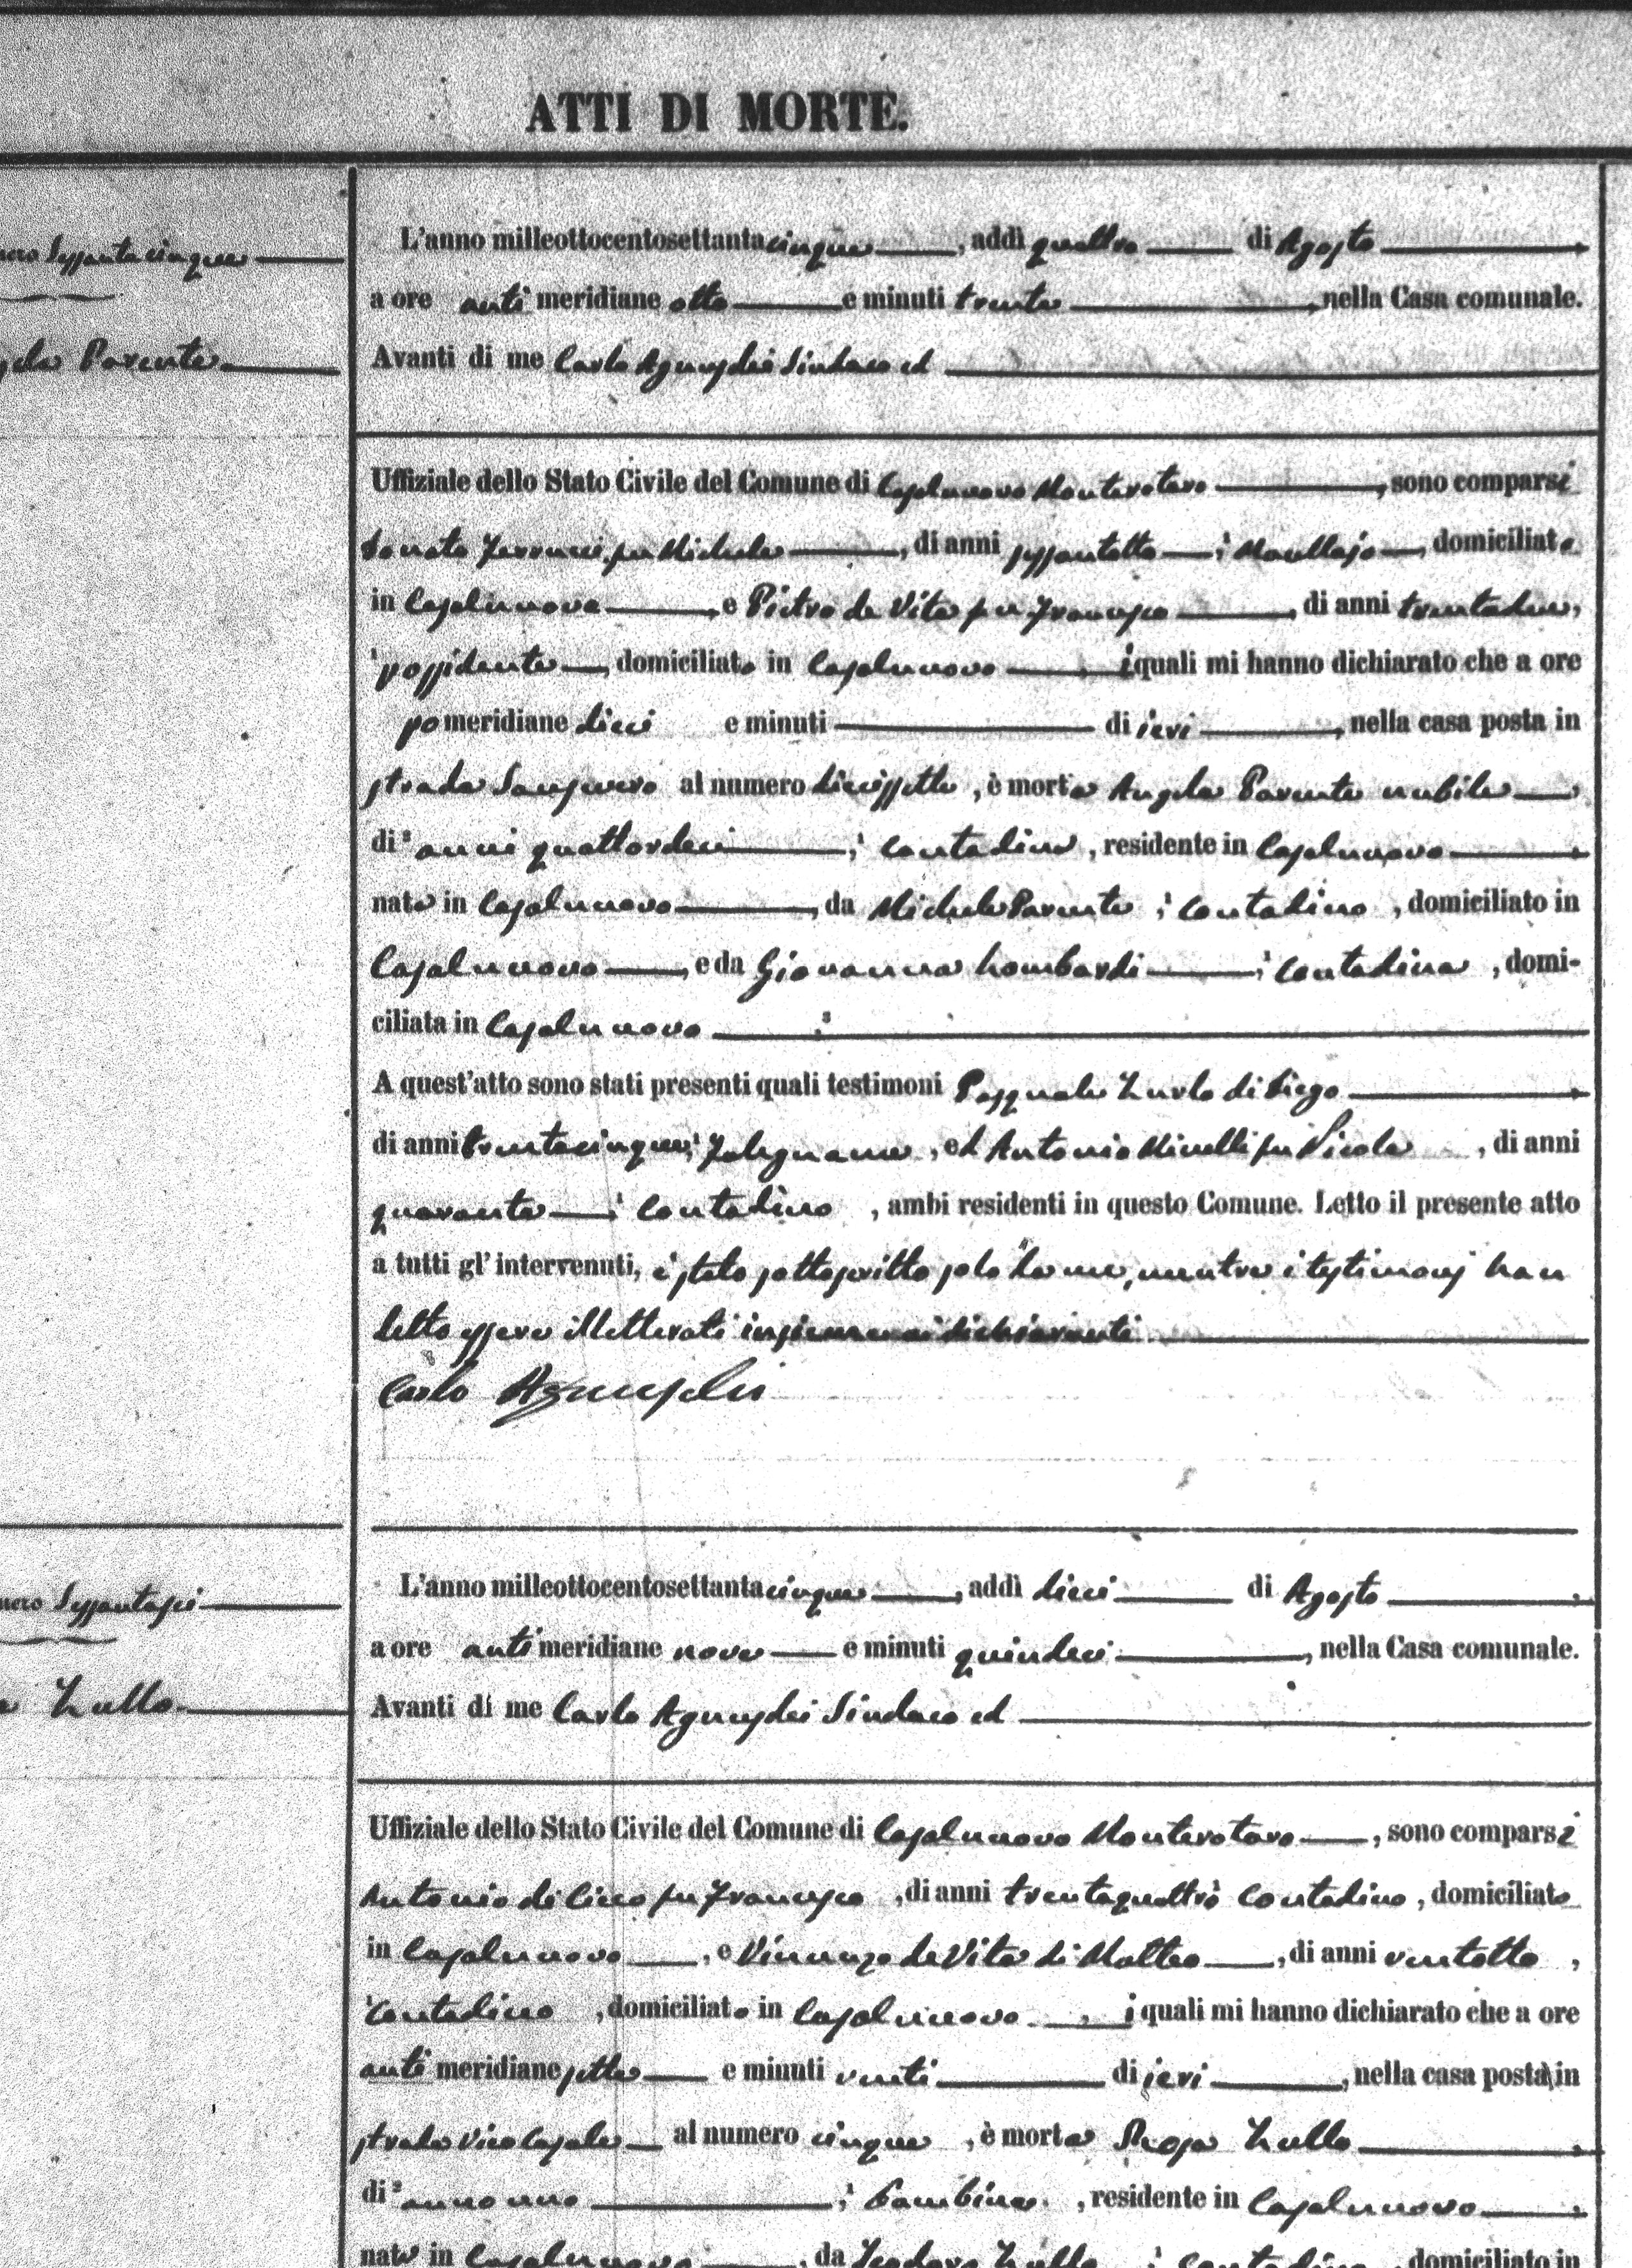 ATTI DI MORTE.
Sessantacinque
Parente
L'anno milleottocentosettantacinque, addì quattro di Agosto
a ore antimeridiane otto e minuti trenta, nella Casa comunale.
Avanti di me Carlo Sindaco ed
Uffiziale dello Stato Civile del Comune di Casalnuovo Monterotaro, sono comparsi
Donato fu Michele, di anni sessantotto, domiciliato
in Casalnuovo, e Pietro de Vita fu Francesco, di anni trentadue,
possidente, domiciliato in Casalnuovo, i quali mi hanno dichiarato che a ore
pomeridiane dieci e minuti di ieri, nella casa posta in
strada Sansevero al numero diciassette, è morta Angela Parente nubile
di anni quattordeci, contadina, residente in Casalnuovo
nata in Casalnuovo, da Michele Parente, contadino, domiciliato in
Casalnuovo, e da Giovanna Lombardi, contadina, domi-
ciliata in Casalnuovo
A quest'atto sono stati presenti quali testimoni Pasquale Zurlo di Diego
di anni trentacinque, Falegname, ed Antonio Minelli fu Nicola, di anni
quaranta, contadino, ambi residenti in questo Comune. Letto il presente atto
a tutti gl'intervenuti, è stato sottoscritto solo da me, mentre i testimonj han
detto essere illetterati insieme ai dichiaranti.
Carlo
Sessantasei
Zullo
L'anno milleottocentosettantacinque, addì dieci di Agosto
a ore antimeridiane nove e minuti quindeci, nella Casa comunale.
Avanti di me Carlo Sindaco ed
Uffiziale dello Stato Civile del Comune di Casalnuovo Monterotaro, sono comparsi
Antonio di Cicco fu Francesco, di anni trentaquattro contadino, domiciliato
in Casalnuovo, e Vincenzo de Vita di Matteo, di anni ventotto,
contadino, domiciliato in Casalnuovo, i quali mi hanno dichiarato che a ore
antimeridiane sette e minuti venti di ieri, nella casa posta in
strada Vico Casale al numero cinque, è morta Rosa Zullo
di anno uno, bambina, residente in Casalnuovo
nata in Casalnuovo, da Teodoro Zullo, contadino, domiciliato in